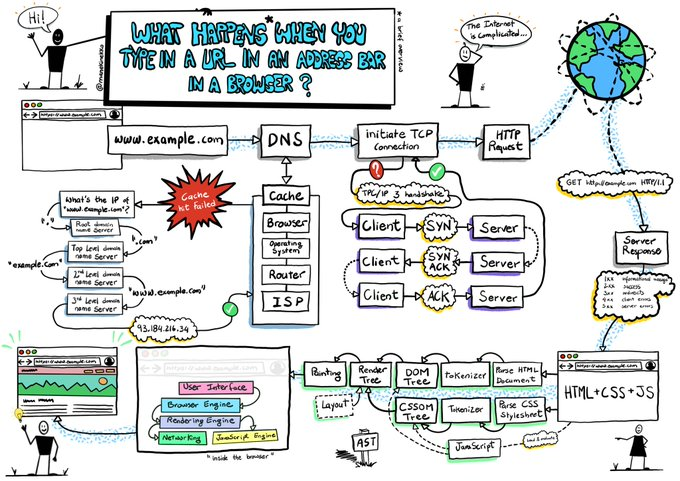 Hi!
WHAT HAPPENS* WHEN YOU
TYPE IN A URL IN AN ADDRESS BAR
IN A BROWSER?
* a brief overview
The Internet
is complicated...
https://www.example.com
www.example.com
DNS
initiate TCP
connection
HTTP
Request
GET http://example.com HTTP/1.1
Server
Response
1xx informational message
2xx success
3xx redirects
4xx client errors
5xx server errors
?
TPC/IP 3 handshake
Client
SYN
Server
Client
SYN
ACK
Server
Client
ACK
Server
Cache
Browser
Operating
System
Router
ISP
Cache
hit failed
What's the IP of
"www.example.com"?
"."
Root domain
name Server
".com"
Top Level domain
name Server
"example.com"
2nd Level domain
name Server
"www.example.com"
3rd Level domain
name Server
93.184.216.34
https://www.example.com
HTML+CSS+JS
Parse HTML
Document
Tokenizer
DOM
Tree
Render
Tree
Painting
Layout
Parse CSS
Stylesheet
Tokenizer
CSSOM
Tree
JavaScript
load & evaluate
AST
User Interface
Browser Engine
Rendering Engine
Networking
JavaScript Engine
"inside the browser"
https://www.example.com